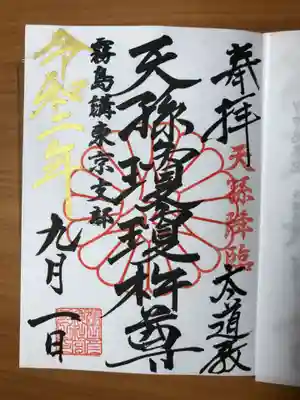 奉拝
天孫降臨
大道教
天孫瓊瓊杵尊
霧島講東京支部
令和二年
九月一日